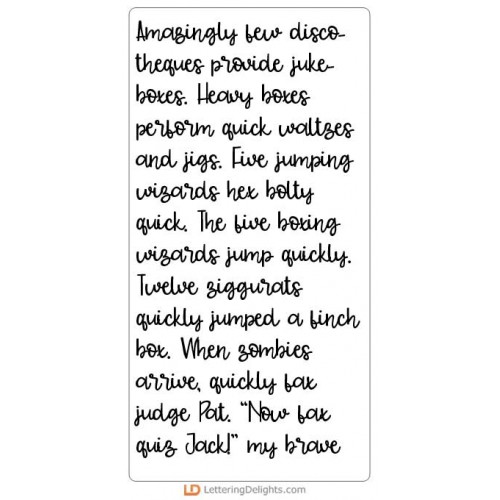 Amazingly few disco-
theques provide juke-
boxes. Heavy boxes
perform quick waltzes
and jigs. Five jumping
wizards hex bolty
quick. The five boxing
wizards jump quickly.
Twelve ziggurats
quickly jumped a finch
box. When zombies
arrive, quickly fax
judge Pat. "Now fax
quiz Jack!" my brave
LD LetteringDelights.com